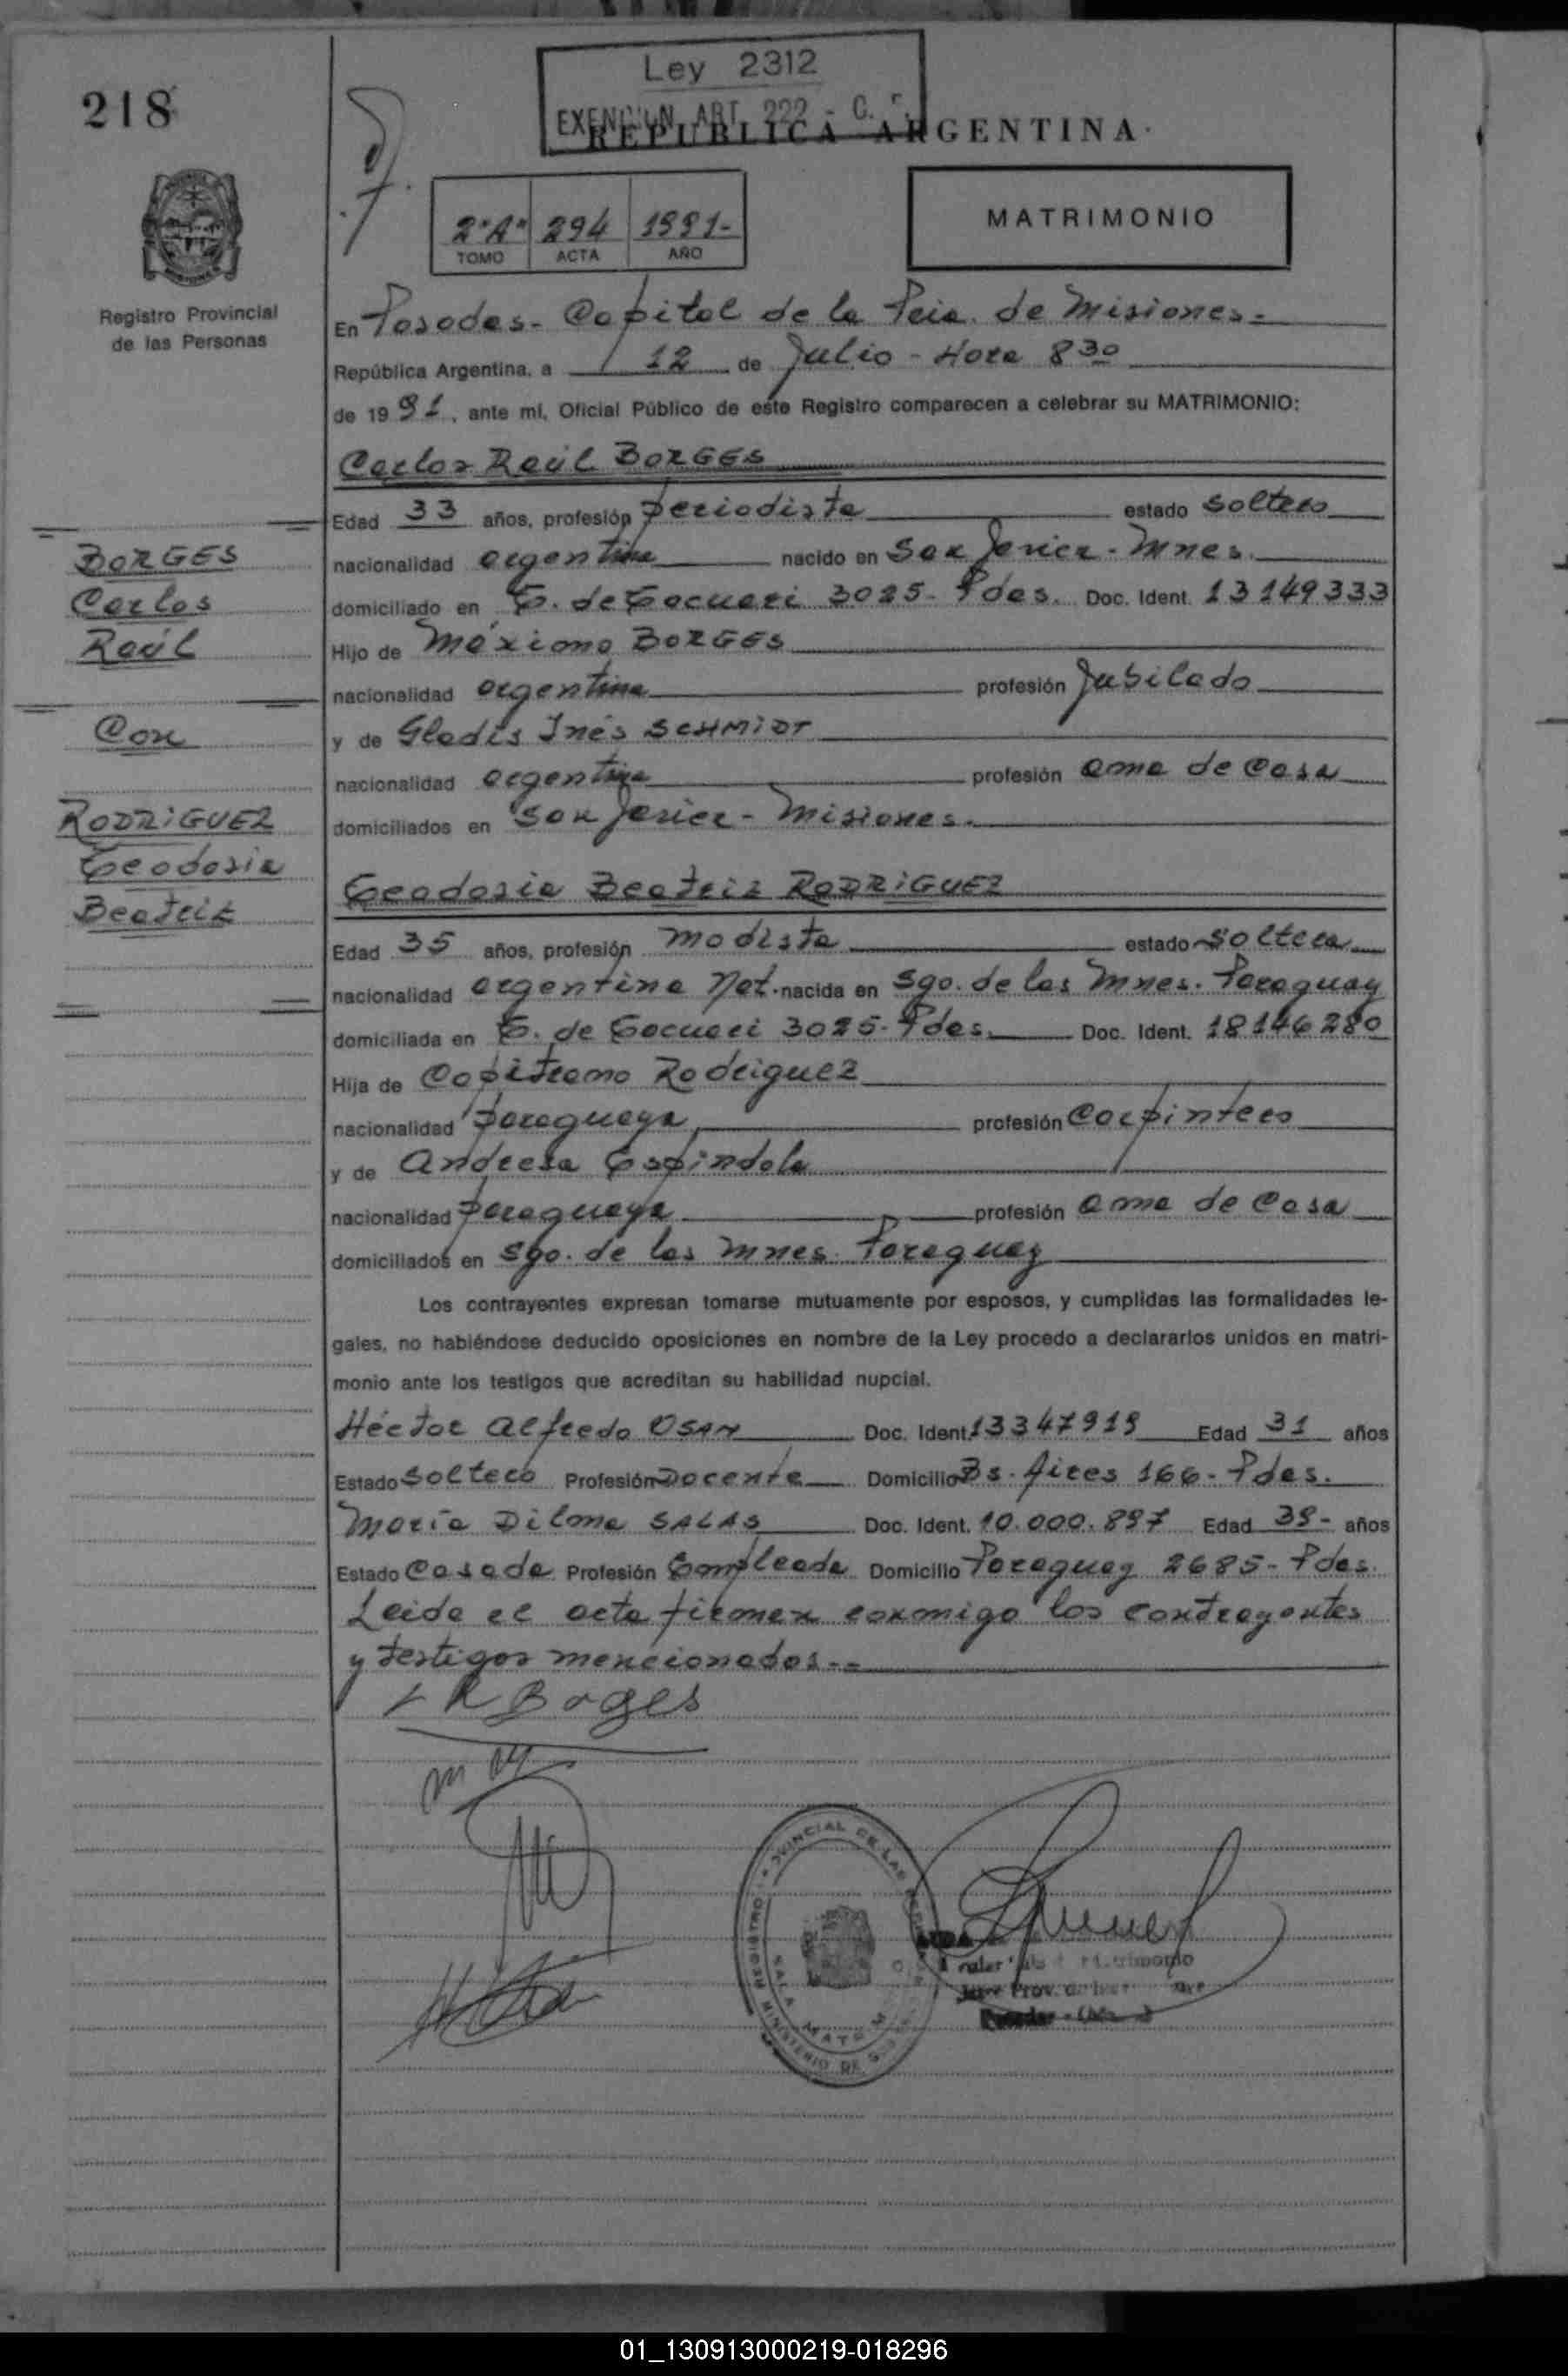 218
Ley 2312
EXENCION ART. 222 - C. F.
REPUBLICA ARGENTINA
2"A" 294 1991-
TOMO ACTA AÑO
MATRIMONIO
Registro Provincial
de las Personas
En Posadas - Capital de la Pcia. de Misiones.-
República Argentina, a 12 de Julio - Hora 8 30
de 1991, ante mí, Oficial Público de este Registro comparecen a celebrar su MATRIMONIO:
Carlos Raúl BORGES
Edad 33 años, profesión periodista estado soltero
nacionalidad argentina nacido en San Javier - Mnes.
domiciliado en T. de Tacuarí 3025 - Pdas. Doc. Ident. 13149333
Hijo de Máximo BORGES
nacionalidad argentina profesión Jubilado
y de Gladis Inés SCHMIDT
nacionalidad argentina profesión ama de casa
domiciliados en San Javier - Misiones.
BORGES
Carlos
Raúl
Con
RODRIGUEZ
Teodosia
Beatriz
Teodosia Beatriz RODRIGUEZ
Edad 35 años, profesión modista estado soltera
nacionalidad argentina Nat. nacida en Sgo. de las Mnes. Paraguay
domiciliada en T. de Tacuarí 3025 - Pdas. Doc. Ident. 18146280
Hija de Capitromo Rodriguez
nacionalidad paraguaya profesión Carpintero
y de Andresa Espindola
nacionalidad paraguaya profesión ama de casa
domiciliados en Sgo. de las Mnes. Paraguay
Los contrayentes expresan tomarse mutuamente por esposos, y cumplidas las formalidades le-
gales, no habiéndose deducido oposiciones en nombre de la Ley procedo a declararlos unidos en matri-
monio ante los testigos que acreditan su habilidad nupcial.
Héctor Alfredo OSAN Doc. Ident. 13347919 Edad 31 años
Estado Soltero Profesión Docente Domicilio Bs. Aires 166 - Pdas.
María Dilma SALAS Doc. Ident. 10.000.897 Edad 39- años
Estado Casada Profesión Empleada Domicilio Paraguay 2685 - Pdas.
Leida el acta firman conmigo los contrayentes
y testigos mencionados.--
R Borges
REGISTRO PROVINCIAL DE LAS PERSONAS
SALA MATR
MINISTERIO DE GOB
01_130913000219-018296